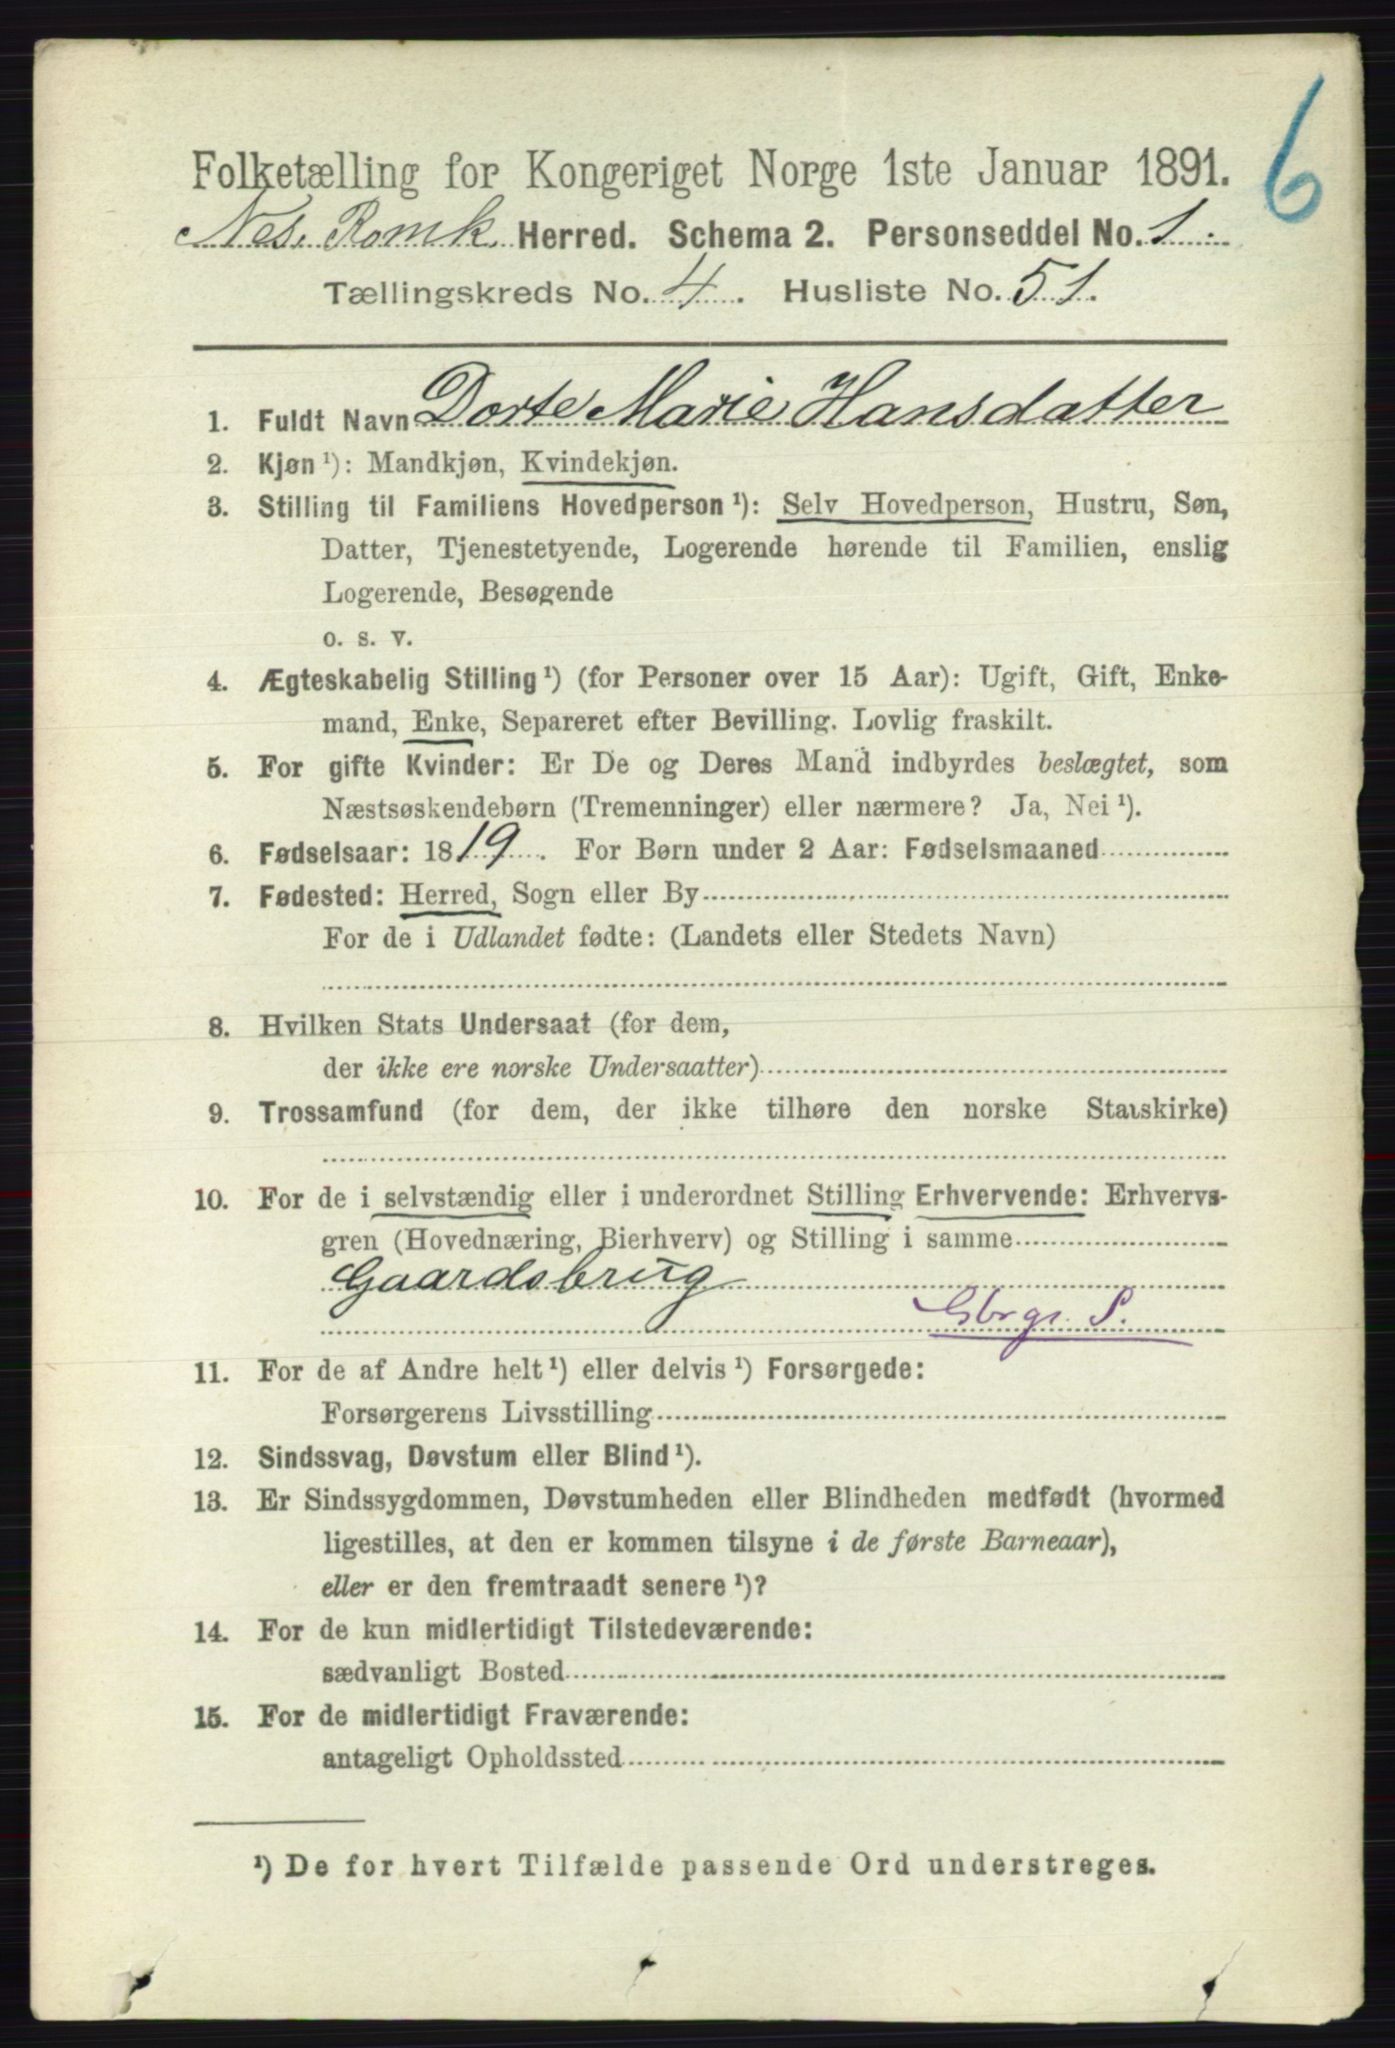 6
Folketælling for Kongeriget Norge 1ste Januar 1891.
Nes. Romk Herred. Schema 2. Personseddel No. 1.
Tællingskreds No. 4. Husliste No. 51.
1. Fuldt Navn Dorte Marie Hansdatter
2. Kjøn ¹): Mandkjøn, Kvindekjøn.
3. Stilling til Familiens Hovedperson ¹): Selv Hovedperson, Hustru, Søn,
Datter, Tjenestetyende, Logerende hørende til Familien, enslig
Logerende, Besøgende
o. s. v.
4. Ægteskabelig Stilling ¹) (for Personer over 15 Aar): Ugift, Gift, Enke-
mand, Enke, Separeret efter Bevilling. Lovlig fraskilt.
5. For gifte Kvinder: Er De og Deres Mand indbyrdes beslægtet, som
Næstsøskendebørn (Tremenninger) eller nærmere? Ja, Nei ¹).
6. Fødselsaar: 1819. For Børn under 2 Aar: Fødselsmaaned
7. Fødested: Herred, Sogn eller By
For de i Udlandet fødte: (Landets eller Stedets Navn)
8. Hvilken Stats Undersaat (for dem,
der ikke ere norske Undersaatter)
9. Trossamfund (for dem, der ikke tilhøre den norske Statskirke)
10. For de i selvstændig eller i underordnet Stilling Erhvervende: Erhvervs-
gren (Hovednæring, Bierhverv) og Stilling i samme
Gaardsbrug
Gbrgr. S.
11. For de af Andre helt ¹) eller delvis ¹) Forsørgede:
Forsørgerens Livsstilling
12. Sindssvag, Døvstum eller Blind ¹).
13. Er Sindssygdommen, Døvstumheden eller Blindheden medfødt (hvormed
ligestilles, at den er kommen tilsyne i de første Barneaar),
eller er den fremtraadt senere ¹)?
14. For de kun midlertidigt Tilstedeværende:
sædvanligt Bosted
15. For de midlertidigt Fraværende:
antageligt Opholdssted
¹) De for hvert Tilfælde passende Ord understreges.